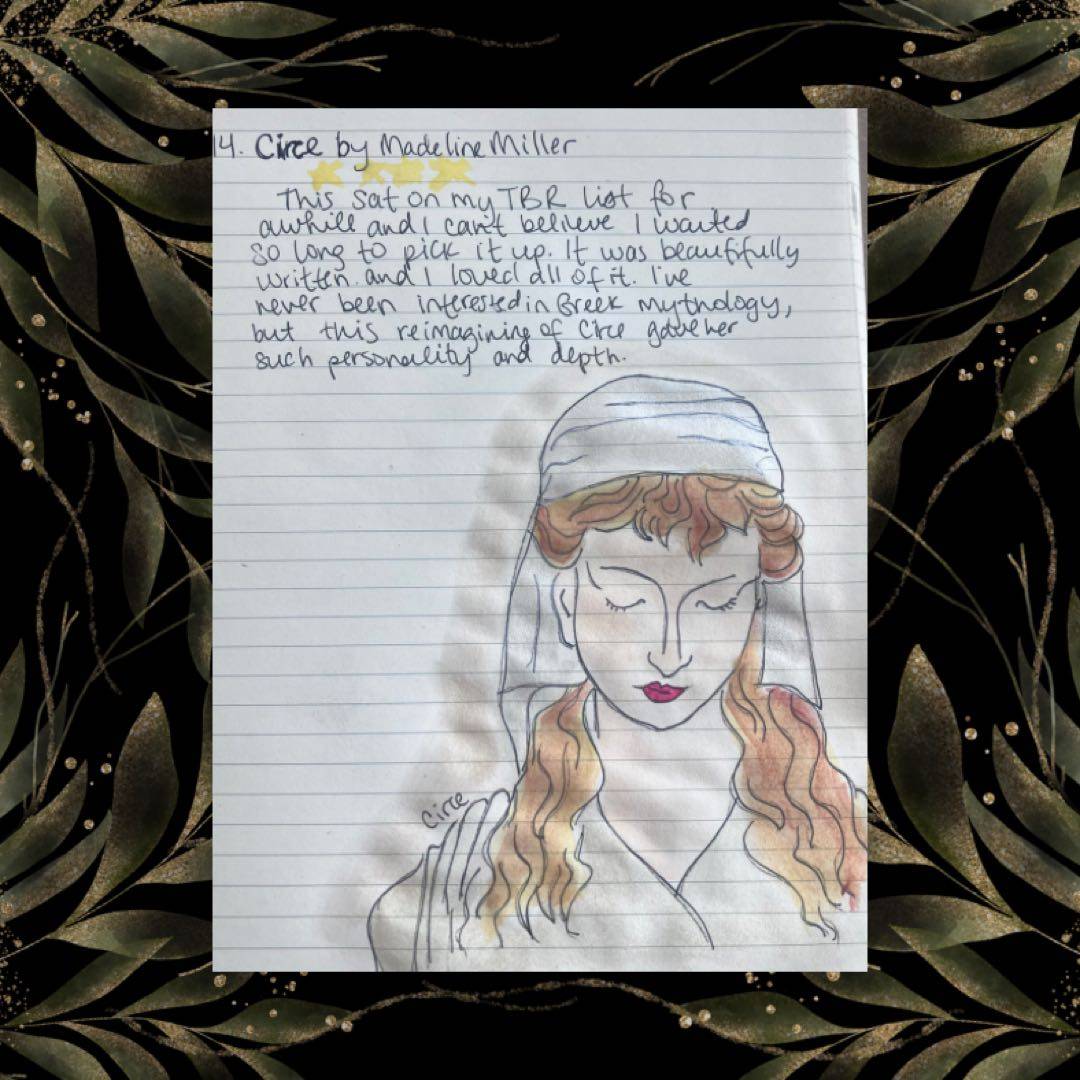 14. Circe by Madeline Miller
This sat on my TBR list for
awhill and I can't believe I waited
so long to pick it up. It was beautifully
written and I loved all of it. I've
never been interested in Greek mythology,
but this reimagining of Circe gave her
such personality and depth.
Circe